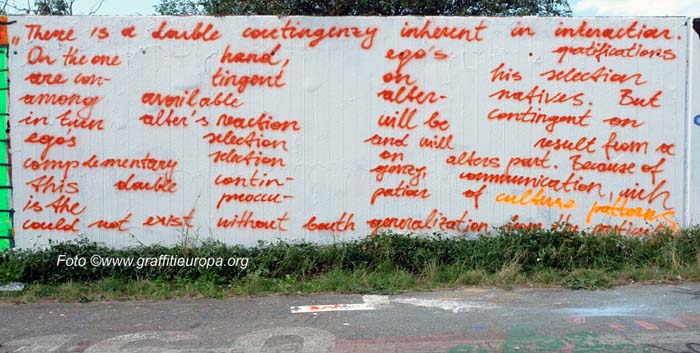 „There is a double contingenzy inherent in interaction.
On the one hand, ego's gratifications
are con- tingent on his selection
among available alter- natives. But
in turn alter's reaction will be contingent on
ego's selection and will result from a
complementary selction on alters part. Because of
this double contin- genzy, communication, wich
is the preoccu- pation of culture patterns
could not exist without bouth generalization from the
Foto ©www.graffitieuropa.org